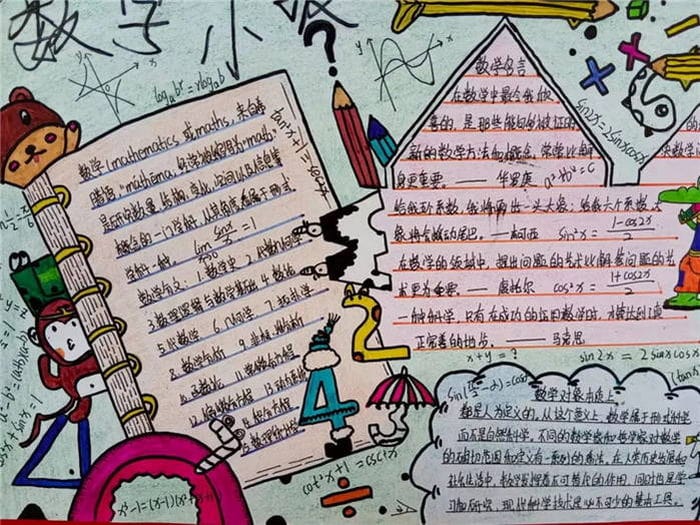 数学小报
log_a b^x = x log_a b
数学(mathematics或maths，来自希
腊语，"máthēma"；经常被缩写为"math")，
是研究数量、结构、变化、空间以及信息等
概念的一门学科，从某种角度看属于形式
科学的一种。 lim x→0 sinx/x = 1
数学分支：1.数学史 2.
3.数理逻辑与数学基础 4.数论
5.代数学 6.几何学 7.拓扑学
8.数学分析 9.非标准分析
10.函数论 11.常微分方程
12.偏微分方程 13.动力系统
14.积分方程
cot²x+1=csc²x
数学名言
在数学中最令我欣
喜的，是那些能够被证明
新的数学方法和概念，常常比解
身更重要。——华罗庚 a²+b²=c
给我五个系数，我将画出一头大象；给我六个系数，大
象将会摇动尾巴。——柯西 sin²x = (1-cos2x)/2
在数学的领域中，提出问题的艺术比解答问题的艺
术更为重要。——康托尔 cos²x = (1+cos2x)/2
一种科学，只有在成功的运用数学时，才算达到了真
正完善的地步。——马克思
x+y=?
sin2x = 2sinxcosx
sin2x=2sinxcosx
sin(π/2-x)=cosx
数学对象本质上
都是人为定义的，从这个意义上，数学属于形式科学
而不是自然科学，不同的数学家和哲学家对数学
的确切范围和定义有一系列的看法。在人类历史发展和
社会生活中，数学发挥着不可替代的作用，同时也是学
习和研究，现代科学技术必不可少的基本工具。